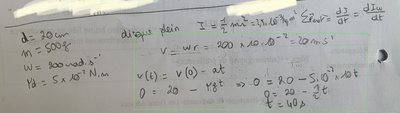 d = 20 cm
m = 500g
ω = 200 rad.s⁻¹
Γd = 5 x 10⁻² N.m
disque plein I = ½ mr² = 2,5.10⁻³ kg m²
v = ωr = 200 x 10.10⁻² = 20 m s⁻¹
v(t) = v(0) - at
0 = 20 - Γd t ⇒ 0 = 20 - 5.10⁻² x 10t
0 = 20 - ½ t
t = 40 s